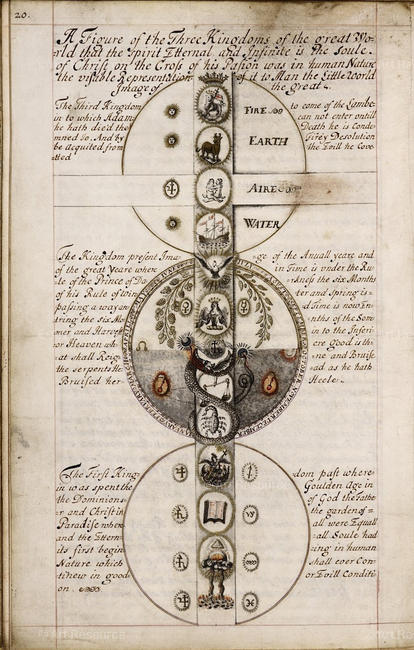 20.
A Figure of the Three Kingdoms of the great Wo-
rld that the Spirit Etternal and Infinite is the Soule
of Christ on the Cross of his Passion was in human Nature
the visible Representation of it to Man the Little World
Image of the great
The Third Kingdom to come of the
in to which Adam can not enter untill
he hath died the Death he is Conde
mned to. And by Firey Desolution
be Acquited from the Evill he Cove
ted
FIRE
EARTH
AIRE
WATER
The Kingdom present Ima ge of the Anuall yeare and
of the great Yeare where in Time is under the Ru
le of the Prince of Da rkness the six Months
of his Rule of Win ter and Spring is
passing away an d Time is now En
tring the six Mo nths of the Som
mer and Harvest in to the Inferi
or Heaven wh ere good is th
at shall Reig ne and Bruise
the serpents He ad as he hath
Bruised her Heele
The First King dom past where
in was spent the Goulden Age in
the Dominions of God the Fathe
r and Christ in the garden of
Paradise where all were Equall
and the Ettern all Soule had
its first begin ing in human
Nature which shall ever Con
tinew in good or Evill Conditi
on.